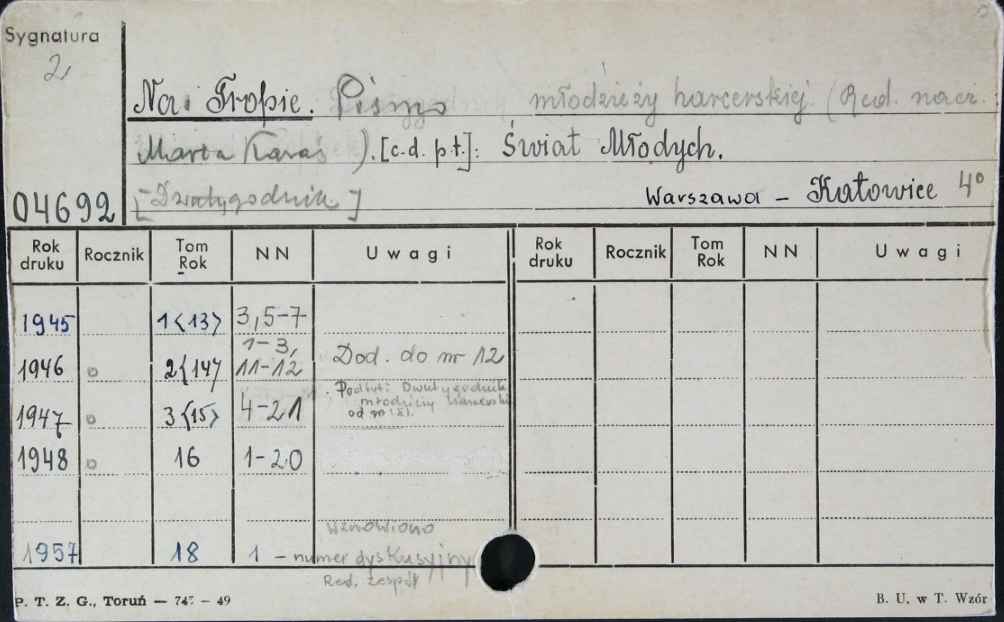 Sygnatura
2
Na Tropie. Pismo młodzieży harcerskiej (Red. nacz.
Marta Karaś). [c.d. p.t.]: Świat Młodych.
04692 [Dwutygodnik] Warszawa – Katowice 4°
Rok druku Rocznik Tom Rok NN Uwagi Rok druku Rocznik Tom Rok NN Uwagi
1945 1<13> 3,5-7
1946 2<14> 1-3, 11-12 Dod. do nr 12
1947 3<15> 4-21 Podtyt: Dwutygodnik
młodzieży harcerskiej
od nr
1948 16 1-20
wznowiono
1957 18 1 - numer dyskusyjny
Red. zespół
P. T. Z. G., Toruń — 747 — 49 B. U. w T. Wzór